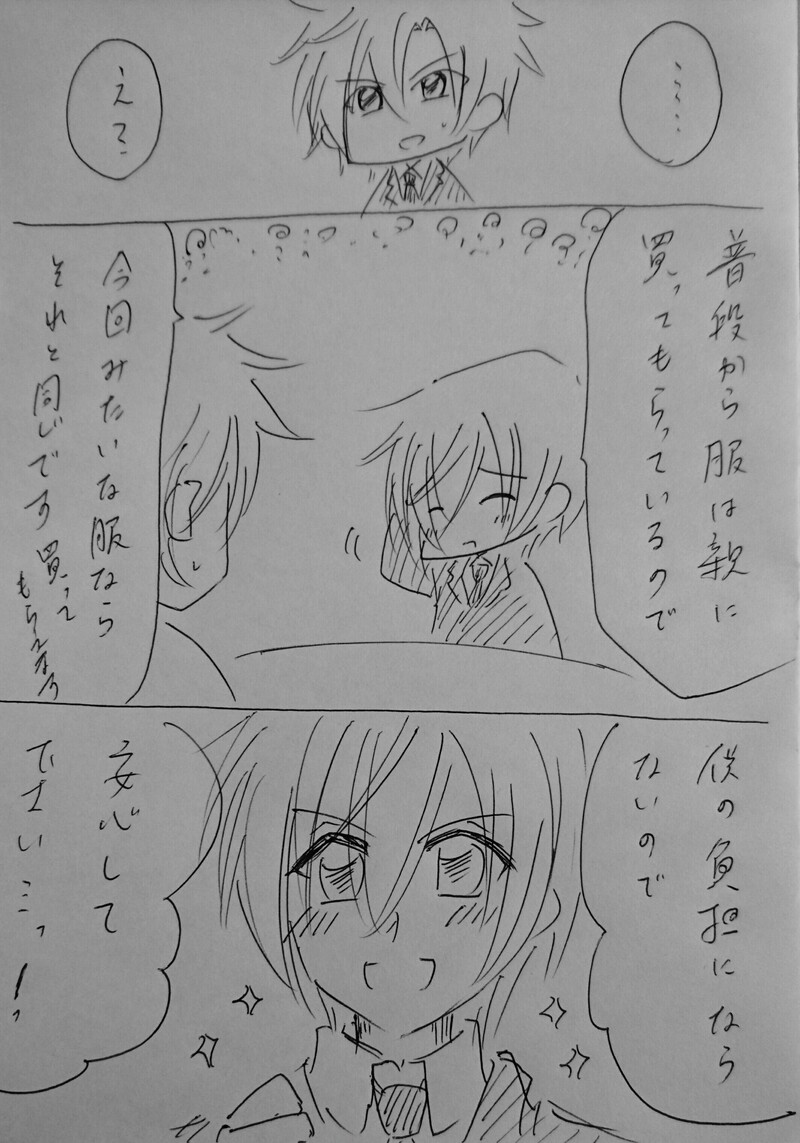 ……
え？
普段から服は親に
買ってもらっているので
今回みたいな服なら
それと同じです 買って
もらえなう
僕の負担になら
ないので
安心して
下さいミっ！